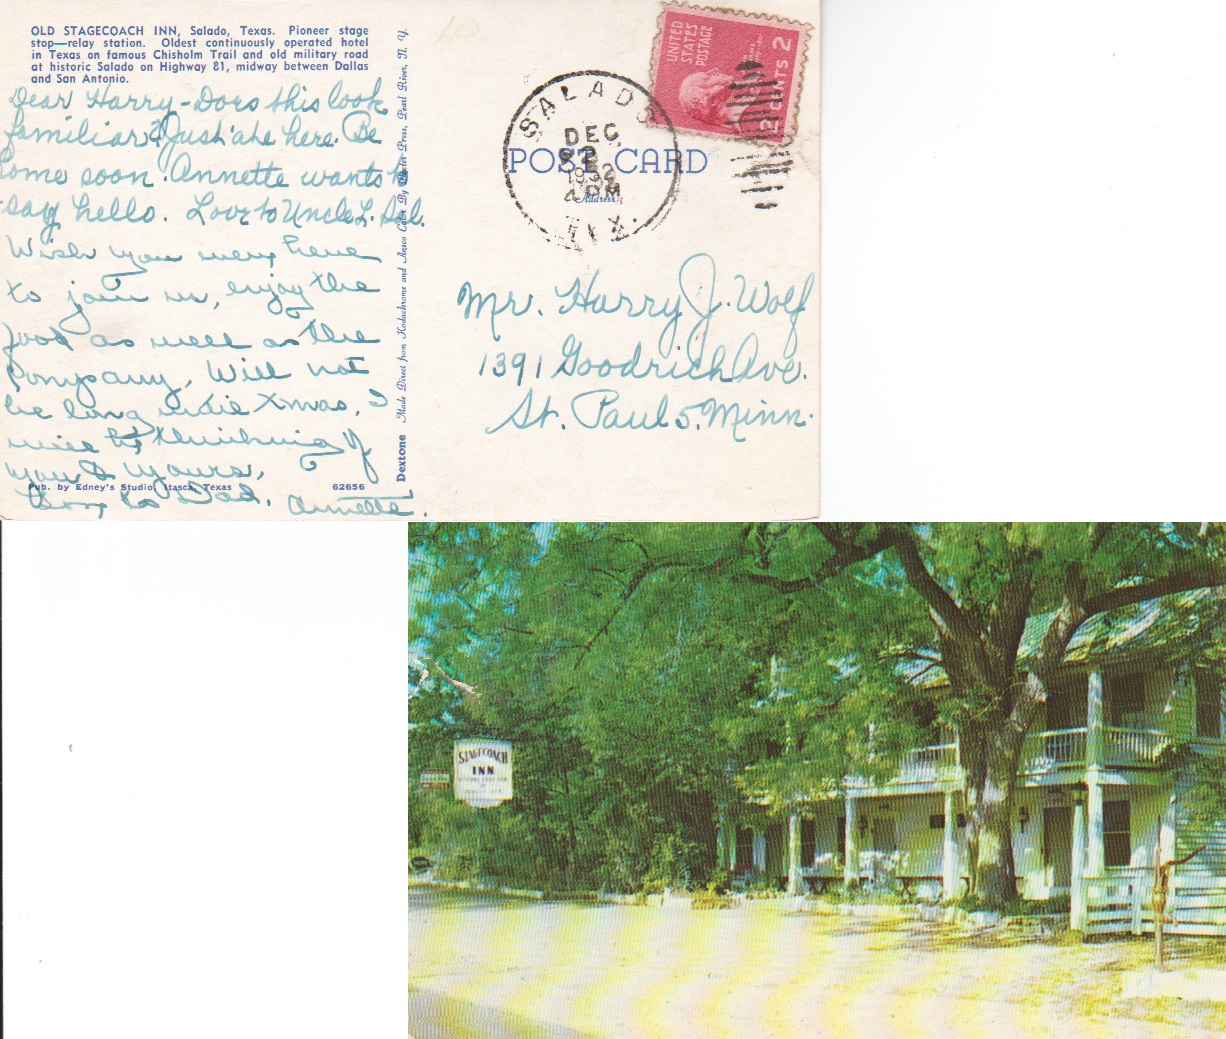 OLD STAGECOACH INN, Salado, Texas. Pioneer stage
stop—relay station. Oldest continuously operated hotel
in Texas on famous Chisholm Trail and old military road
at historic Salado on Highway 81, midway between Dallas
and San Antonio.
Dear Harry - Does this look
familiar? Just ate here. Be
home soon. Annette wants to
say hello. Love to Uncle L. Sal.
Wish you were here
to join us, enjoy the
food as well as the
company. Will not
be long until Xmas. I
will be thinking of
you & yours,
to Dad. Annette.
Pub. by Edney's Studio, Itasca, Texas
62656
Dextone Made Direct from Kodachrome and Ansco Color By Dexter Press, Pearl River, N. Y.
UNITED
STATES
POSTAGE
2 CENTS 2
SALADO
DEC
1952
TEX.
POST CARD
Address
Mr. Harry J. Wolf
1391 Goodrich Ave.
St. Paul 5, Minn.
STAGECOACH
INN